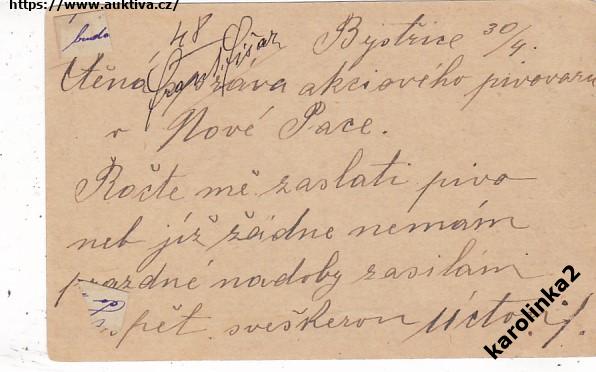 https://www.auktiva.cz/
budo
48
Bystřice 30/4.
Ctěná správa akciového pivovaru
v Nové Pace.
Ročte mě zaslati pivo
neb již žádne nemám
prazdné nadoby zasilám
zpět. sveškerou Úctou
karolinka2